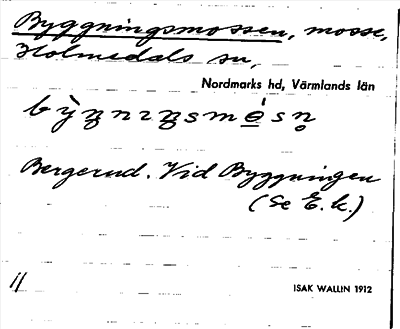 Byggningsmossen, mosse,
Holmedals sn,
Nordmarks hd, Värmlands län
Bergerud. Vid Byggningen
(Se E. k.)
11
ISAK WALLIN 1912